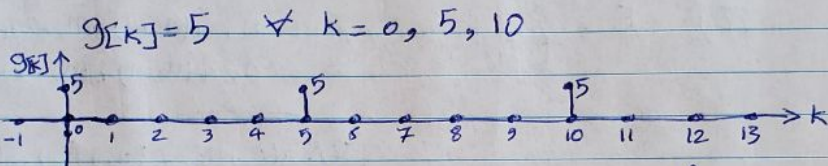 g[k]=5 ∀ k=0, 5, 10
g[k] 5 5 5 k
-1 0 1 2 3 4 5 6 7 8 9 10 11 12 13